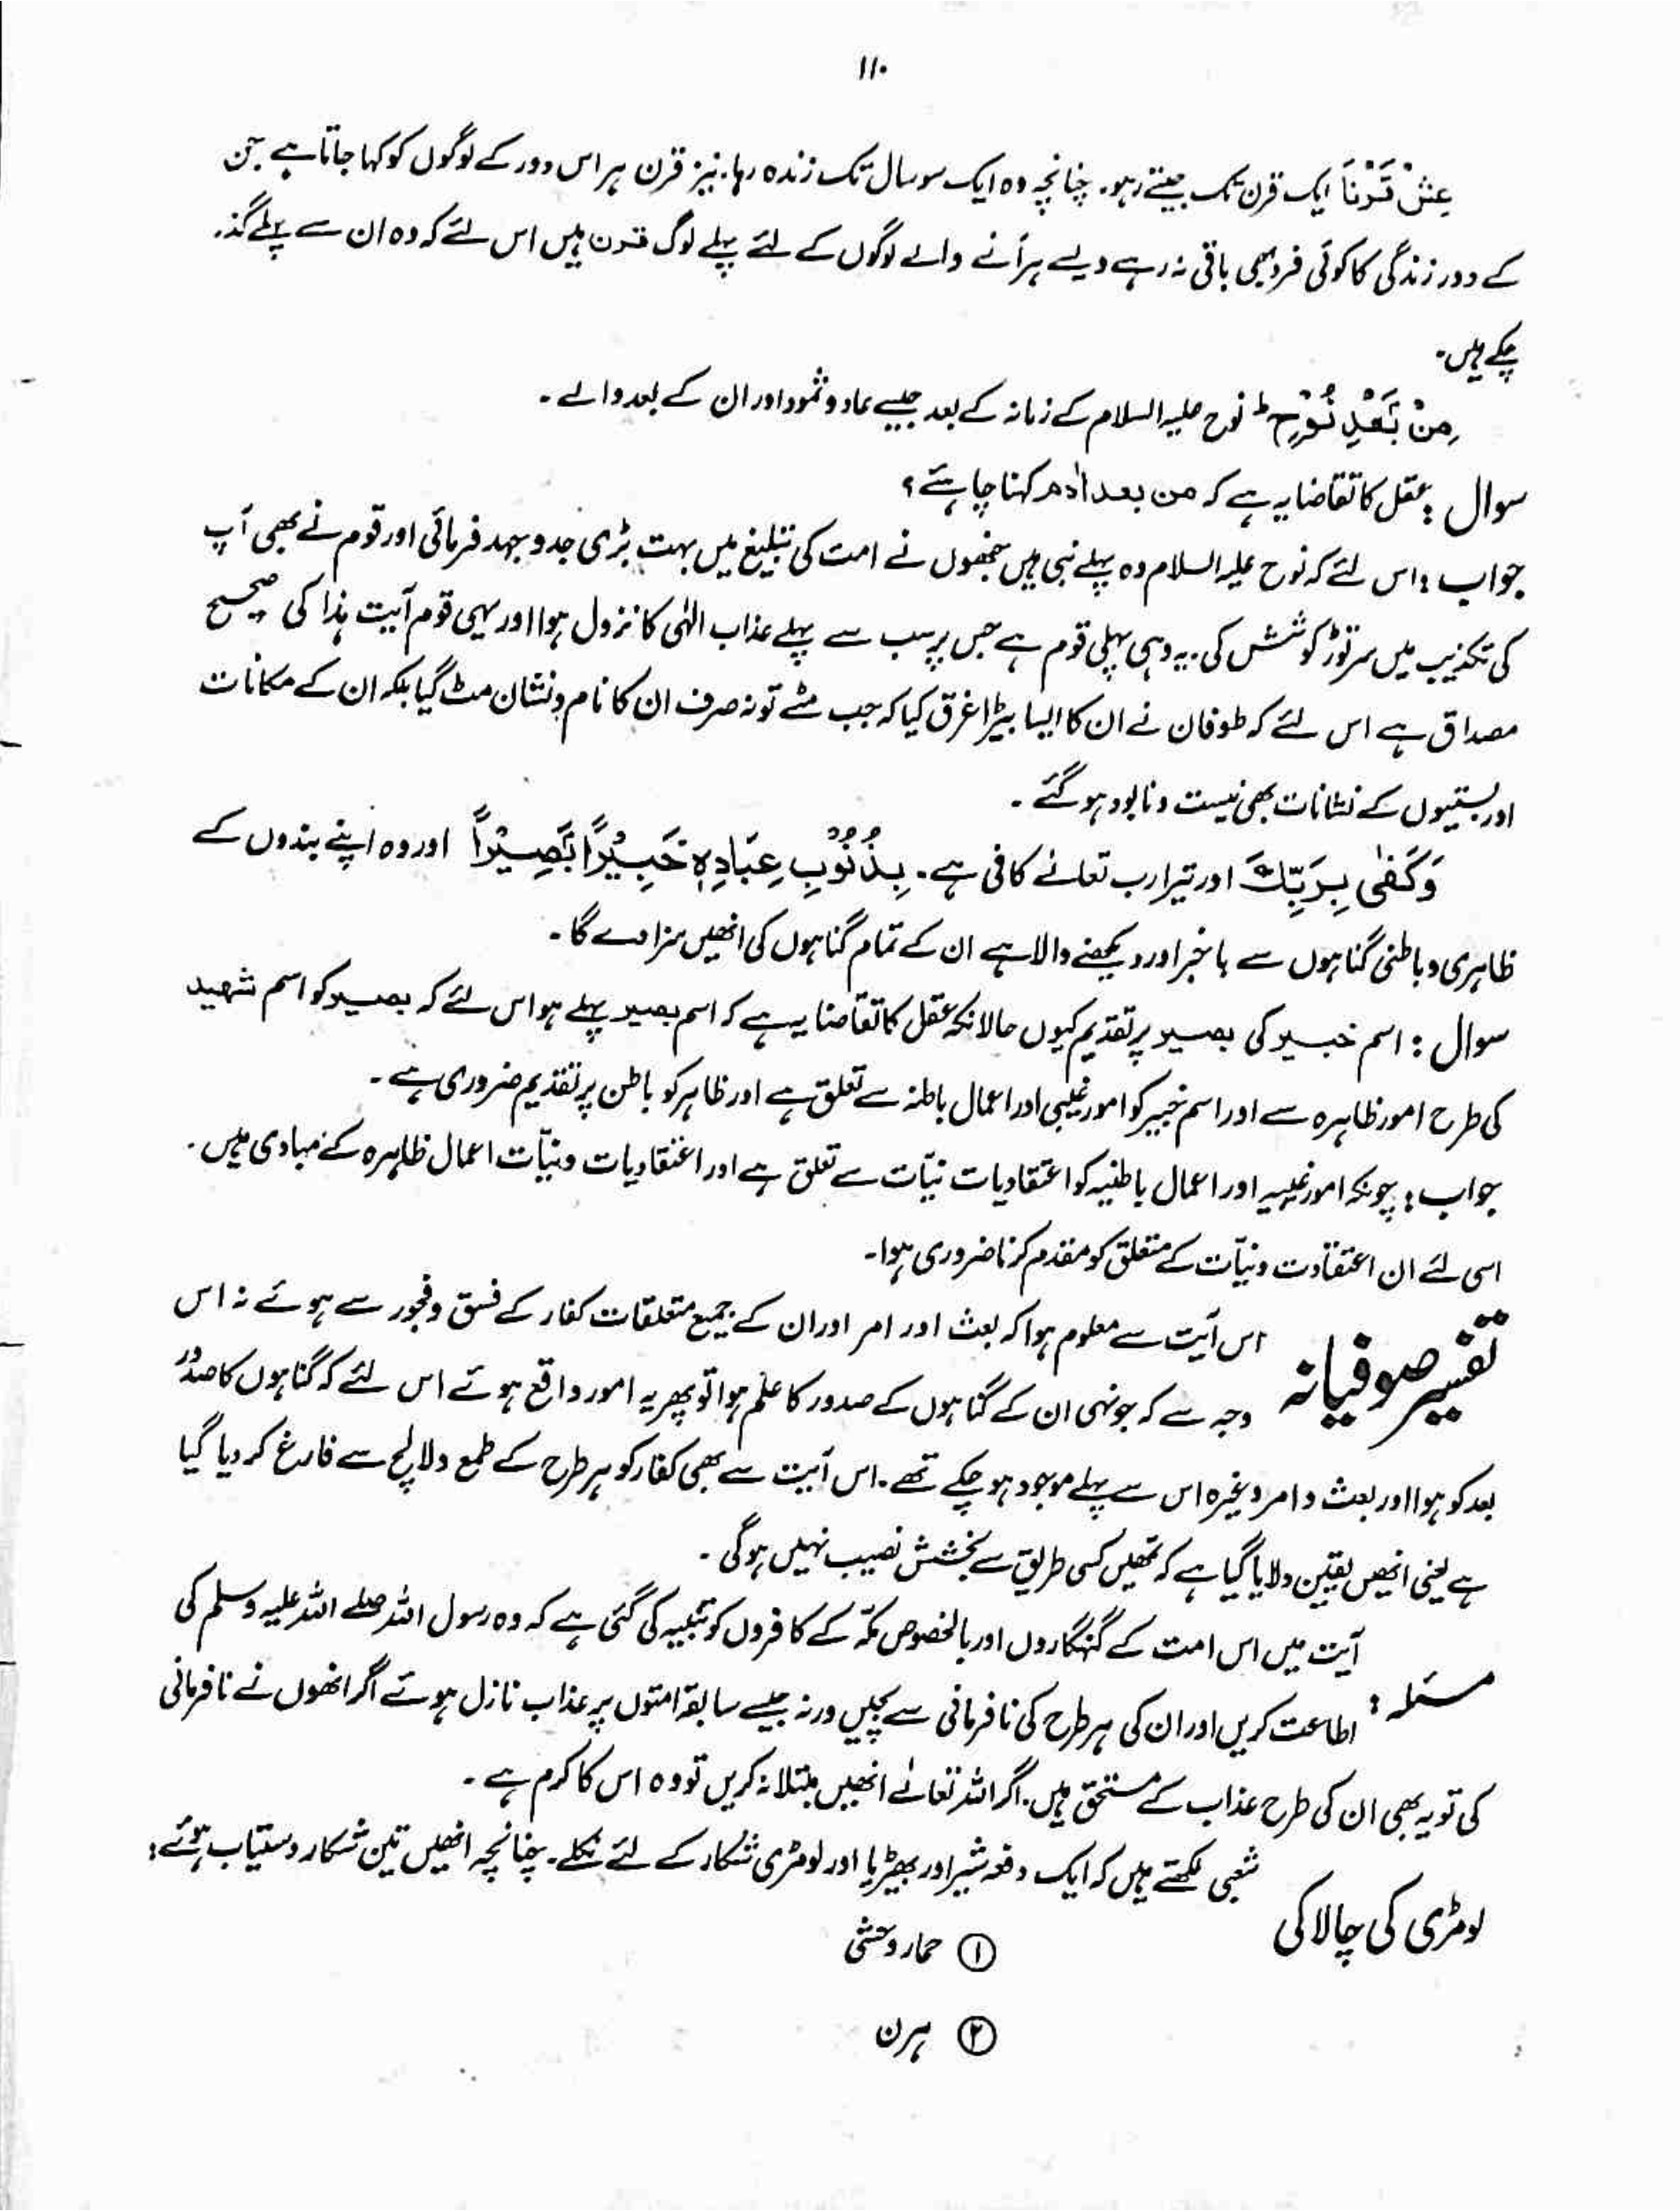 ۱۱۰
عِشْ قَرْنًا ایک قرن تک جیتے رہو۔ چنانچہ وہ ایک سو سال تک زندہ رہا۔ نیز قرن ہر اس دور کے لوگوں کو کہا جاتا ہے جن
کے دور زندگی کا کوئی فرد بھی باقی نہ رہے ویسے ہر آنے والے لوگوں کے لئے پہلے لوگ قرن ہیں اس لئے کہ وہ ان سے پہلے گذر
چکے ہیں۔
مِنْۢ بَعْدِ نُوْحٍ ؕ نوح علیہ السلام کے زمانہ کے بعد جیسے عاد و ثمود اور ان کے بعد والے۔
سوال : عقل کا تقاضا یہ ہے کہ من بعد اٰدم کہنا چاہئے؟
جواب : اس لئے کہ نوح علیہ السلام وہ پہلے نبی ہیں جنھوں نے امت کی تبلیغ میں بہت بڑی جدوجہد فرمائی اور قوم نے بھی آپ
کی تکذیب میں سرتوڑ کوشش کی۔ یہ وہی پہلی قوم ہے جس پر سب سے پہلے عذاب الٰہی کا نزول ہوا اور یہی قوم آیت ہٰذا کی صحیح
مصداق ہے اس لئے کہ طوفان نے ان کا ایسا بیڑا غرق کیا کہ جب مٹے تو نہ صرف ان کا نام و نشان مٹ گیا بلکہ ان کے مکانات
اور بستیوں کے نشانات بھی نیست و نابود ہو گئے۔
وَكَفٰی بِرَبِّكَ اور تیرا رب تعالےٰ کافی ہے۔ بِذُنُوْبِ عِبَادِهٖ خَبِیْرًا بَصِیْرًا اور وہ اپنے بندوں کے
ظاہری و باطنی گناہوں سے باخبر اور دیکھنے والا ہے ان کے تمام گناہوں کی انھیں سزا دے گا۔
سوال : اسم خبیر کی بصیر پر تقدیم کیوں حالانکہ عقل کا تقاضا یہ ہے کہ اسم بصیر پہلے ہو اس لئے کہ بصیر کو اسم شھید
کی طرح امور ظاہرہ سے اور اسم خبیر کو امور غیبی اور اعمال باطنہ سے تعلق ہے اور ظاہر کو باطن پر تقدیم ضروری ہے۔
جواب : چونکہ امور غیبیہ اور اعمال باطنیہ کو اعتقادیات نیّات سے تعلق ہے اور اعتقادیات و نیّات اعمال ظاہرہ کے مبادی ہیں۔
اسی لئے ان اعتقادت و نیّات کے متعلق کو مقدم کرنا ضروری ہوا۔
تفسیر صوفیانہ اس آیت سے معلوم ہوا کہ بعث اور امر اور ان کے جمیع متعلقات کفار کے فسق و فجور سے ہوئے نہ اس
وجہ سے کہ جونہی ان کے گناہوں کے صدور کا علم ہوا تو پھر یہ امور واقع ہوئے اس لئے کہ گناہوں کا صدور
بعد کو ہوا اور بعث و امر وغیرہ اس سے پہلے موجود ہو چکے تھے۔ اس آیت سے بھی کفار کو ہر طرح کے طمع و لالچ سے فارغ کر دیا گیا
ہے یعنی انھیں یقین دلایا گیا ہے کہ تمھیں کسی طریق سے بخشش نصیب نہیں ہوگی۔
آیت میں اس امت کے گنہگاروں اور بالخصوص مکّہ کے کافروں کو تنبیہ کی گئی ہے کہ وہ رسول اللہ صلے اللہ علیہ وسلم کی
مسئلہ : اطاعت کریں اور ان کی ہر طرح کی نافرمانی سے بچیں ورنہ جیسے سابقہ امتوں پر عذاب نازل ہوئے اگر انھوں نے نافرمانی
کی تو یہ بھی ان کی طرح عذاب کے مستحق ہیں۔ اگر اللہ تعالےٰ انھیں مبتلا نہ کریں تو وہ اس کا کرم ہے۔
لومڑی کی چالاکی شعبی لکھتے ہیں کہ ایک دفعہ شیر اور بھیڑیا اور لومڑی شکار کے لئے نکلے۔ چنانچہ انھیں تین شکار دستیاب ہوئے:
① حمار وحشی
② ہرن